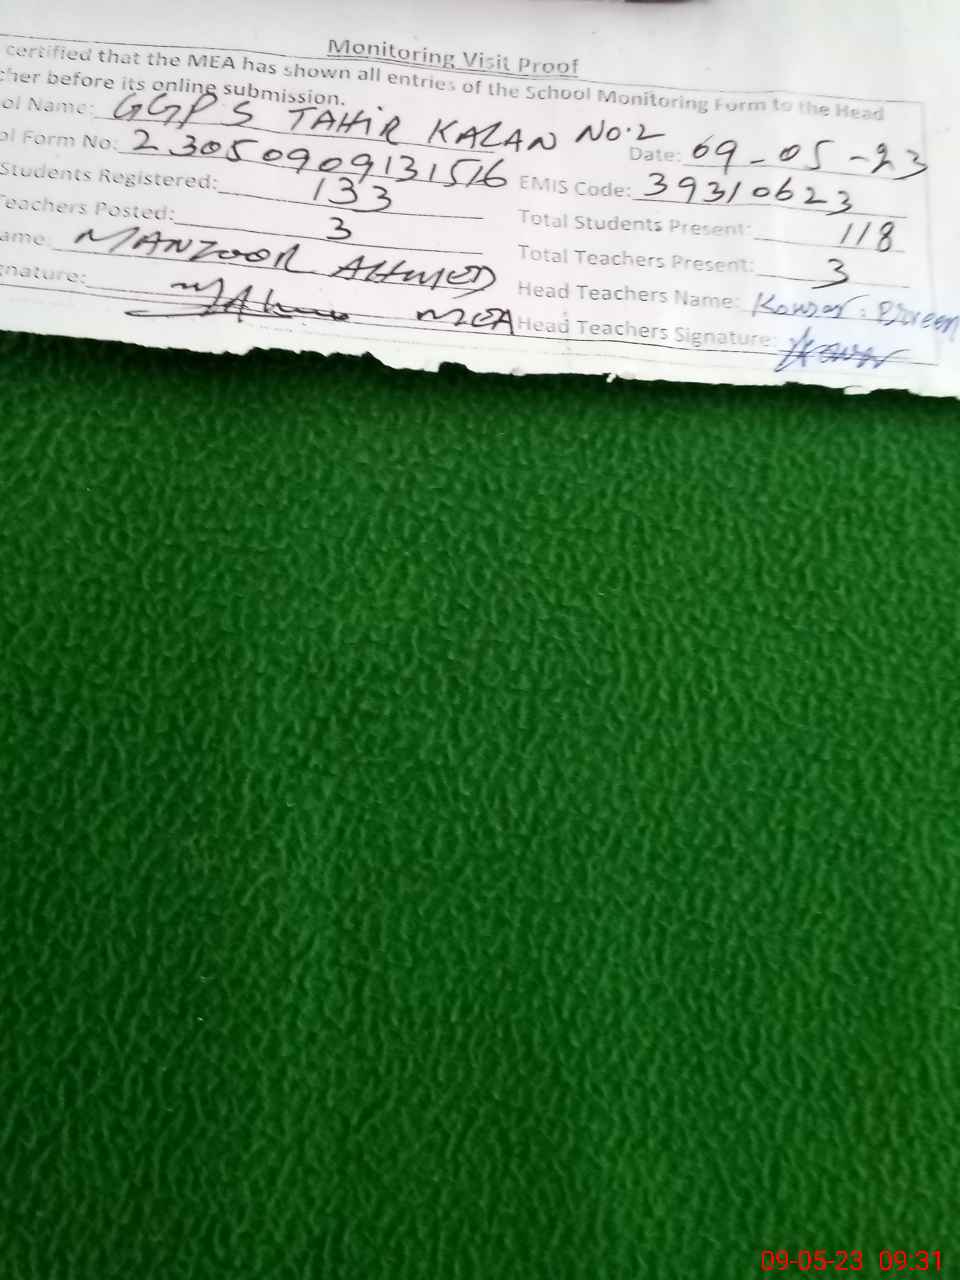 Monitoring Visit Proof
certified that the MEA has shown all entries of the School Monitoring Form to the Head
cher before its online submission.
ol Name: GGPS TAHIR KALAN NO.2
Date: 09-05-23
ol Form No: 23050909131516
EMIS Code: 39310623
Students Registered: 133
Total Students Present: 118
Teachers Posted: 3
Total Teachers Present: 3
ame: MANZOOR AHMED
Head Teachers Name: Kowsar Parveen
gnature: MEA
Head Teachers Signature:
09-05-23 09:31